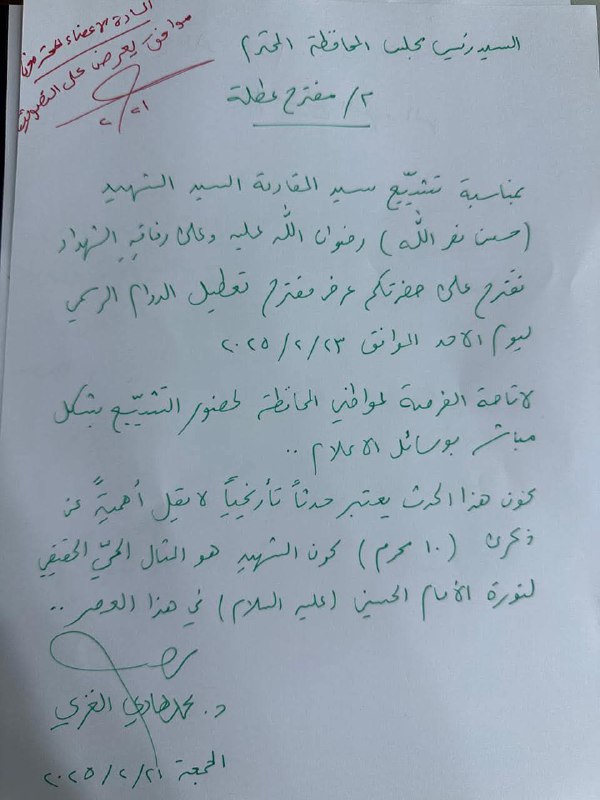 السادة الاعضاء المحترمون
موافق يعرض على التصويت
٢/٢١
السيد رئيس مجلس المحافظة المحترم
م/ مقترح عطلة
بمناسبة تشيّيع سيد المقاومة السيد الشهيد
(حسن نصر الله) رضوان الله عليه وعلى رفاقه الشهداء
نقترح على حضرتكم عرض مقترح تعطيل الدوام الرسمي
ليوم الاحد الموافق ٢٠٢٥/٢/٢٣
لاتاحة الفرصة لمواطني المحافظة لحضور التشيّيع بشكل
مباشر بوسائل الاعلام ..
كون هذا الحدث يعتبر حدثاً تأريخياً لا يقل أهميةً عن
ذكرى (١٠ محرم) كون الشهيد هو المثال الحيّ الحقيقي
لثورة الأمام الحسين (عليه السلام) في هذا العصر ..
د. محمد هادي الغزي
الجمعة ٢٠٢٥/٢/٢١